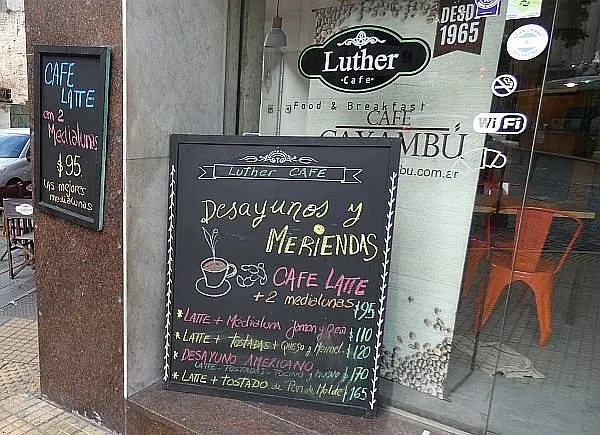 CAFE
LATTE
con 2
Medialunas
$95
Las mejores
medialunas
DESDE
1965
Luther
Cafe
Food & Breakfast
CAFE
CAYAMBÚ
bu.com.ar
WiFi
Luther CAFE
Desayunos y
MERIENDAS
CAFE LATTE
+ 2 medialunas $95
* LATTE + Medialuna Jamon y Queso $110
* LATTE + TOSTADAS + Queso y Mermel $120
* DESAYUNO AMERICANO
LATTE - TOSTADAS - TOCINO y huevo $170
* LATTE + TOSTADO de Pan de Molde $165